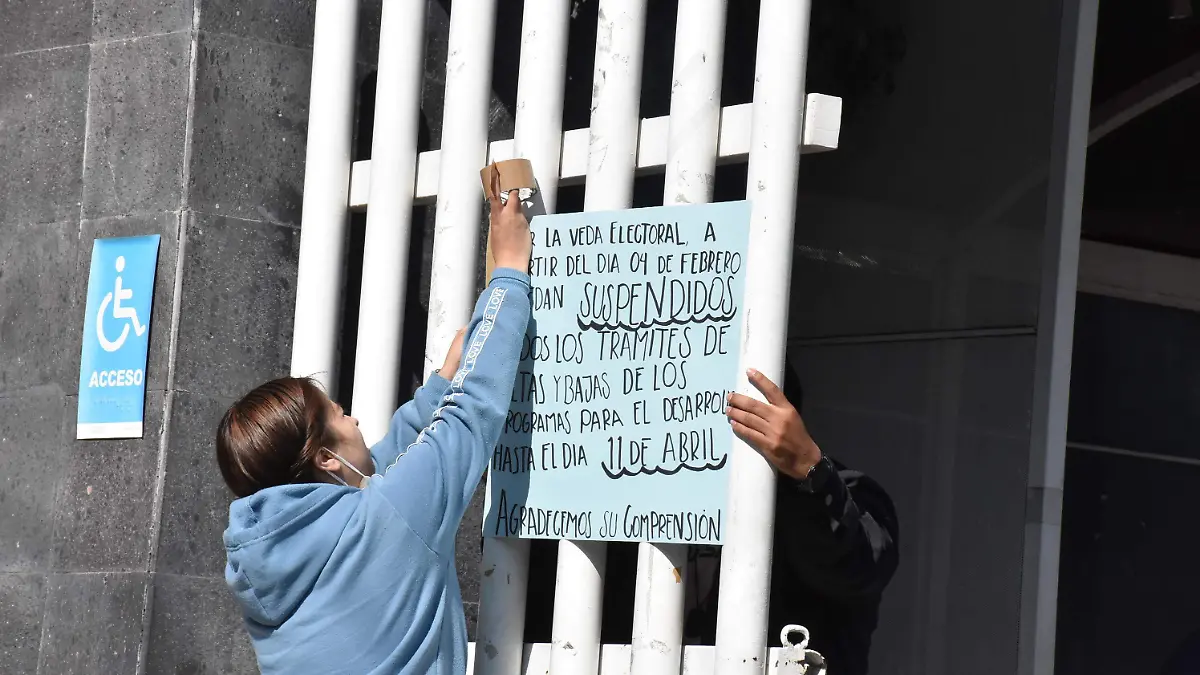 ACCESO
LOVE LOVE LOVE LOVE
LA VEDA ELECTORAL, A
RTIR DEL DIA 04 DE FEBRERO
DAN SUSPENDIDOS
DOS LOS TRAMITES DE
LTAS Y BAJAS DE LOS
PROGRAMAS PARA EL DESARROLLO
HASTA EL DIA 11 DE ABRIL
AGRADECEMOS SU COMPRENSIÓN